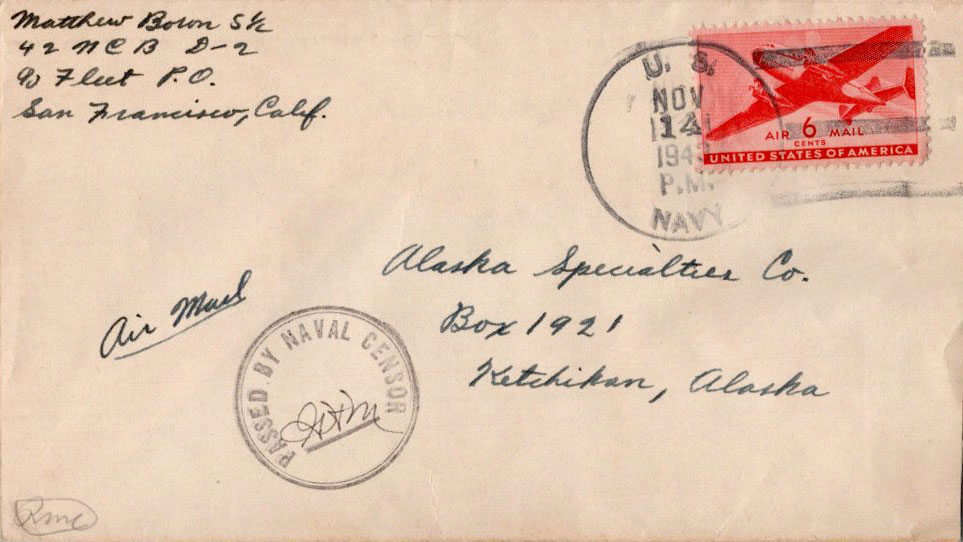 Matthew Bown S 1/c
42 NCB D-2
c/o Fleet P.O.
San Francisco, Calif.
U. S.
NOV
14
1943
P.M.
NAVY
AIR 6 MAIL
CENTS
UNITED STATES OF AMERICA
Alaska Specialties Co.
Box 1921
Ketchikan, Alaska
Air Mail
PASSED BY NAVAL CENSOR